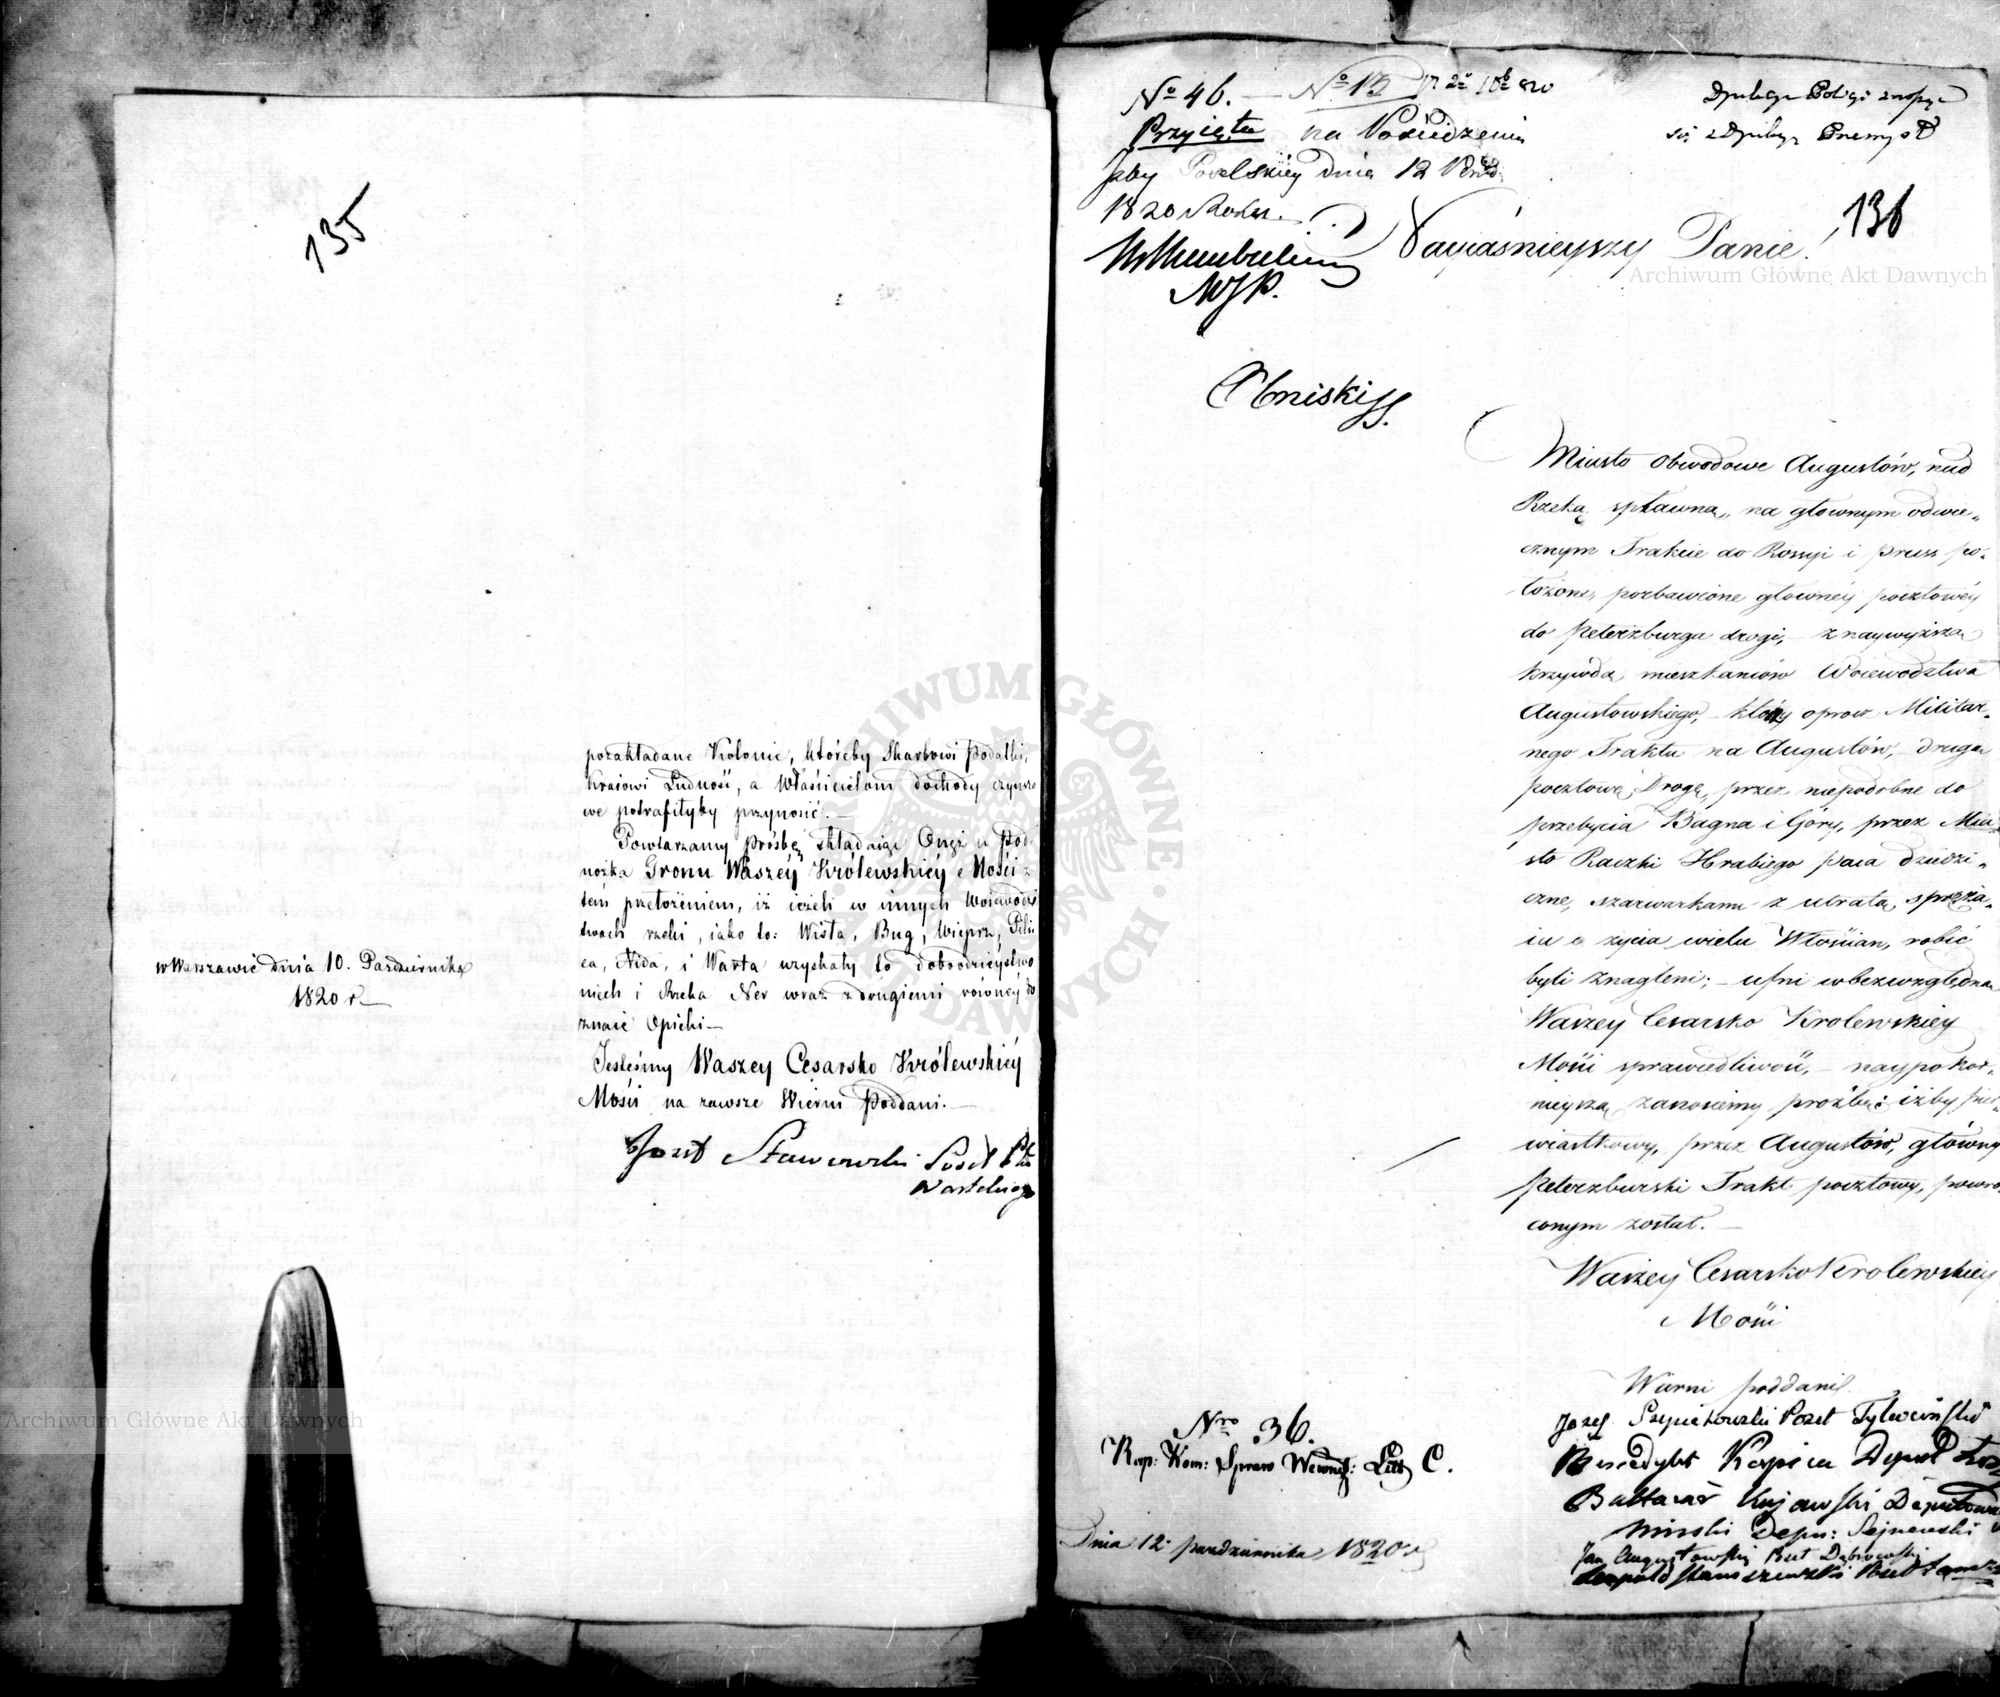 135
pozakładane Kolonie, któreby Skarbowi Podatki,
Kraiowi Ludność, a Właścicielom dochody czynszo
we potrafiłyby przynosić. —
Powtarzamy prośbę składaiąc Onęż u Pod
nóżka Tronu Waszéy Królewskiéy Mości z
tém przełożeniem, iż ieżeli w innych Woiewódz
twach rzeki, iako to: Wisła, Bug, Wieprz, Pilii
ca, Nida, i Warta uzyskały to dobrodzieystwo
niech i Rzeka Ner wraz z drugiemi rówńey do
znaie Opieki —
w Warszawie dnia 10. Października
1820 r
Jesteśmy Waszey Cesarsko Królewskiéy
Mości na zawsze Wierni Poddani. —
Józef Stawowski Poseł Ptu
Wartskiego
No 46. — No 13
Przyięta na Posiedzeniu
Jzby Poselskiéy dnia 12
1820 Roku.
MJP.
136
Nayiaśnieyszy Panie!
Miasto obwodowe Augustów, nad
Rzeką spławną, na głownym odwie„
cznym Trakcie do Rossyi i Pruss po„
łożone, pozbawione głownéy pocztowéy
do Peterzburga drogi, — z naywyższą
krzywdą mieszkańców Woiewodztwa
Augustowskiego, — którzy oprócz Militar„
nego Traktu na Augustów, — drugą
pocztową Drogę, przez niepodobne do
przebycia Bagna i Góry, przez Mia
sto Raczki Hrabiego Paca dziedzi„
czne, szarwarkami z utratą sprzęża„
iu i życia wielu Włościan, robić
byli znagleni; — ufni w bezwzględną
Waszey Cesarsko Krolewskiey
Mości sprawiedliwość, — naypokor„
nieyszą zanosiemy proźbę: iżby pier„
wiastkowy, przez Augustów, główny
Peterzburski Trakt pocztowy, powro
conym został. —
Waszey Cesarsko Krolewskiey
Mości
Wierni poddani
Józef Poseł
Benedykt Karpica Deput
Baltazar Kujawski Deputowa
Depu: Sejneński
Jan Augustowski
Leopold Staniszewski
Nro 36.
Rap: Kom: Spraw Wewnę: Litt C.
Dnia 12 października 1820 r
Archiwum Główne Akt Dawnych
Archiwum Główne Akt Dawnych
ARCHIWUM GŁÓWNE AKT DAWNYCH